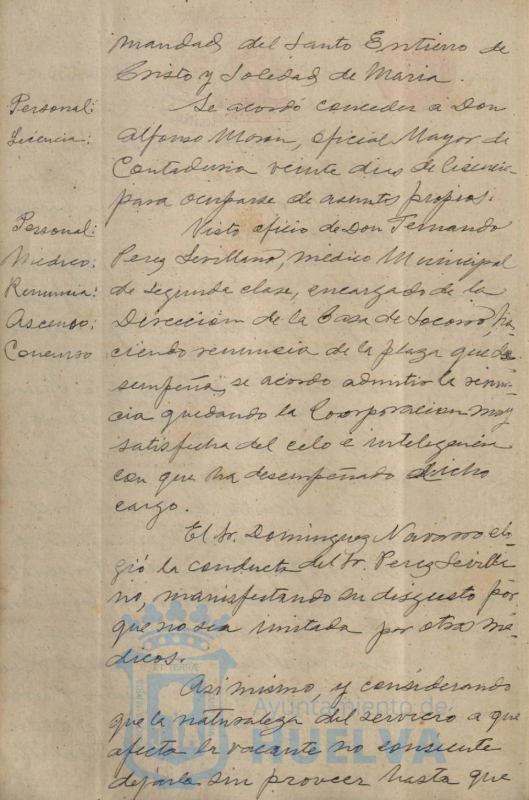 mandad del Santo Entierro de
Cristo y Soledad de Maria.
Personal:
Licencia:
Se acordó conceder a Don
Alfonso Moran, oficial Mayor de
Contaduria veinte dias de licencia
para ocuparse de asuntos propios.
Personal:
Médico:
Renuncia:
Ascenso:
Concurso
Visto oficio de Don Fernando
Perez Sevillano, médico Municipal
de segunda clase, encargado de la
Dirección de la Casa de Socorro, ha-
ciendo renuncia de la plaza que de
sempeña, se acordo admitir la renun
cia quedando la Corporacion muy
satisfecha del celo e inteligencia
con que ha desempeñado dicho
cargo.
El Sr. Dominguez Navarro elo
gió la conducta del Sr. Perez Sevilla
no, manifestando su disgusto por
que no sea imitada por otros mé-
dicos.
Asi mismo, y considerando
que la naturaleza del servicio a que
afecta la vacante no consiente
dejarla sin proveer hasta que
Ayuntamiento de
HUELVA